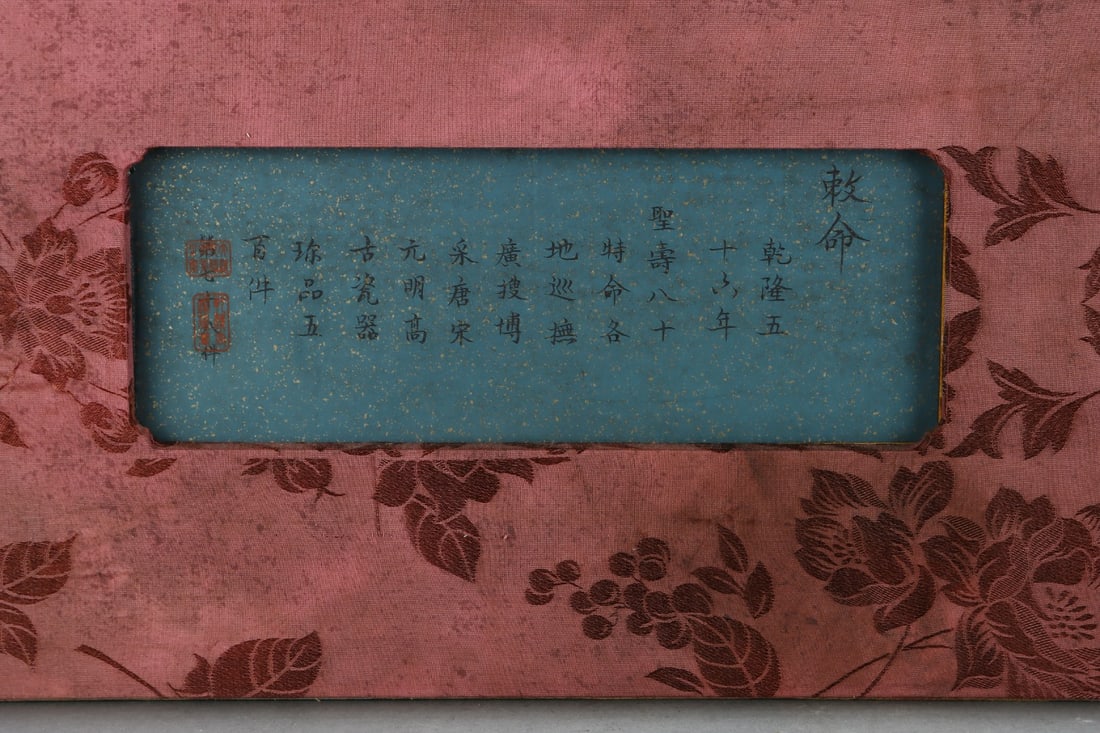 敕命
乾隆五
十六年
聖壽八十
特命各
地巡撫
廣搜博
采唐宋
元明高
古瓷器
珍品五
百件
第七十八件